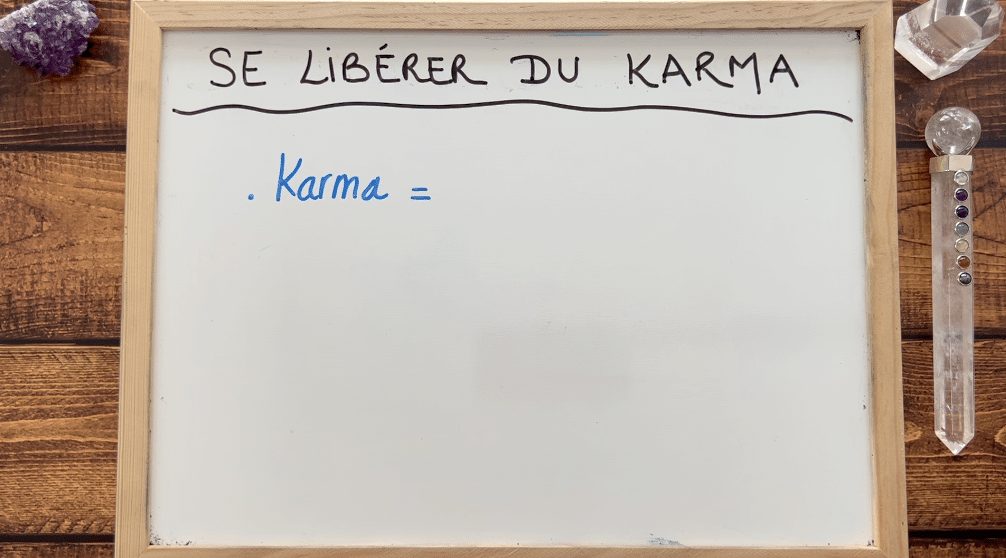 SE LIBÉRER DU KARMA
. Karma =